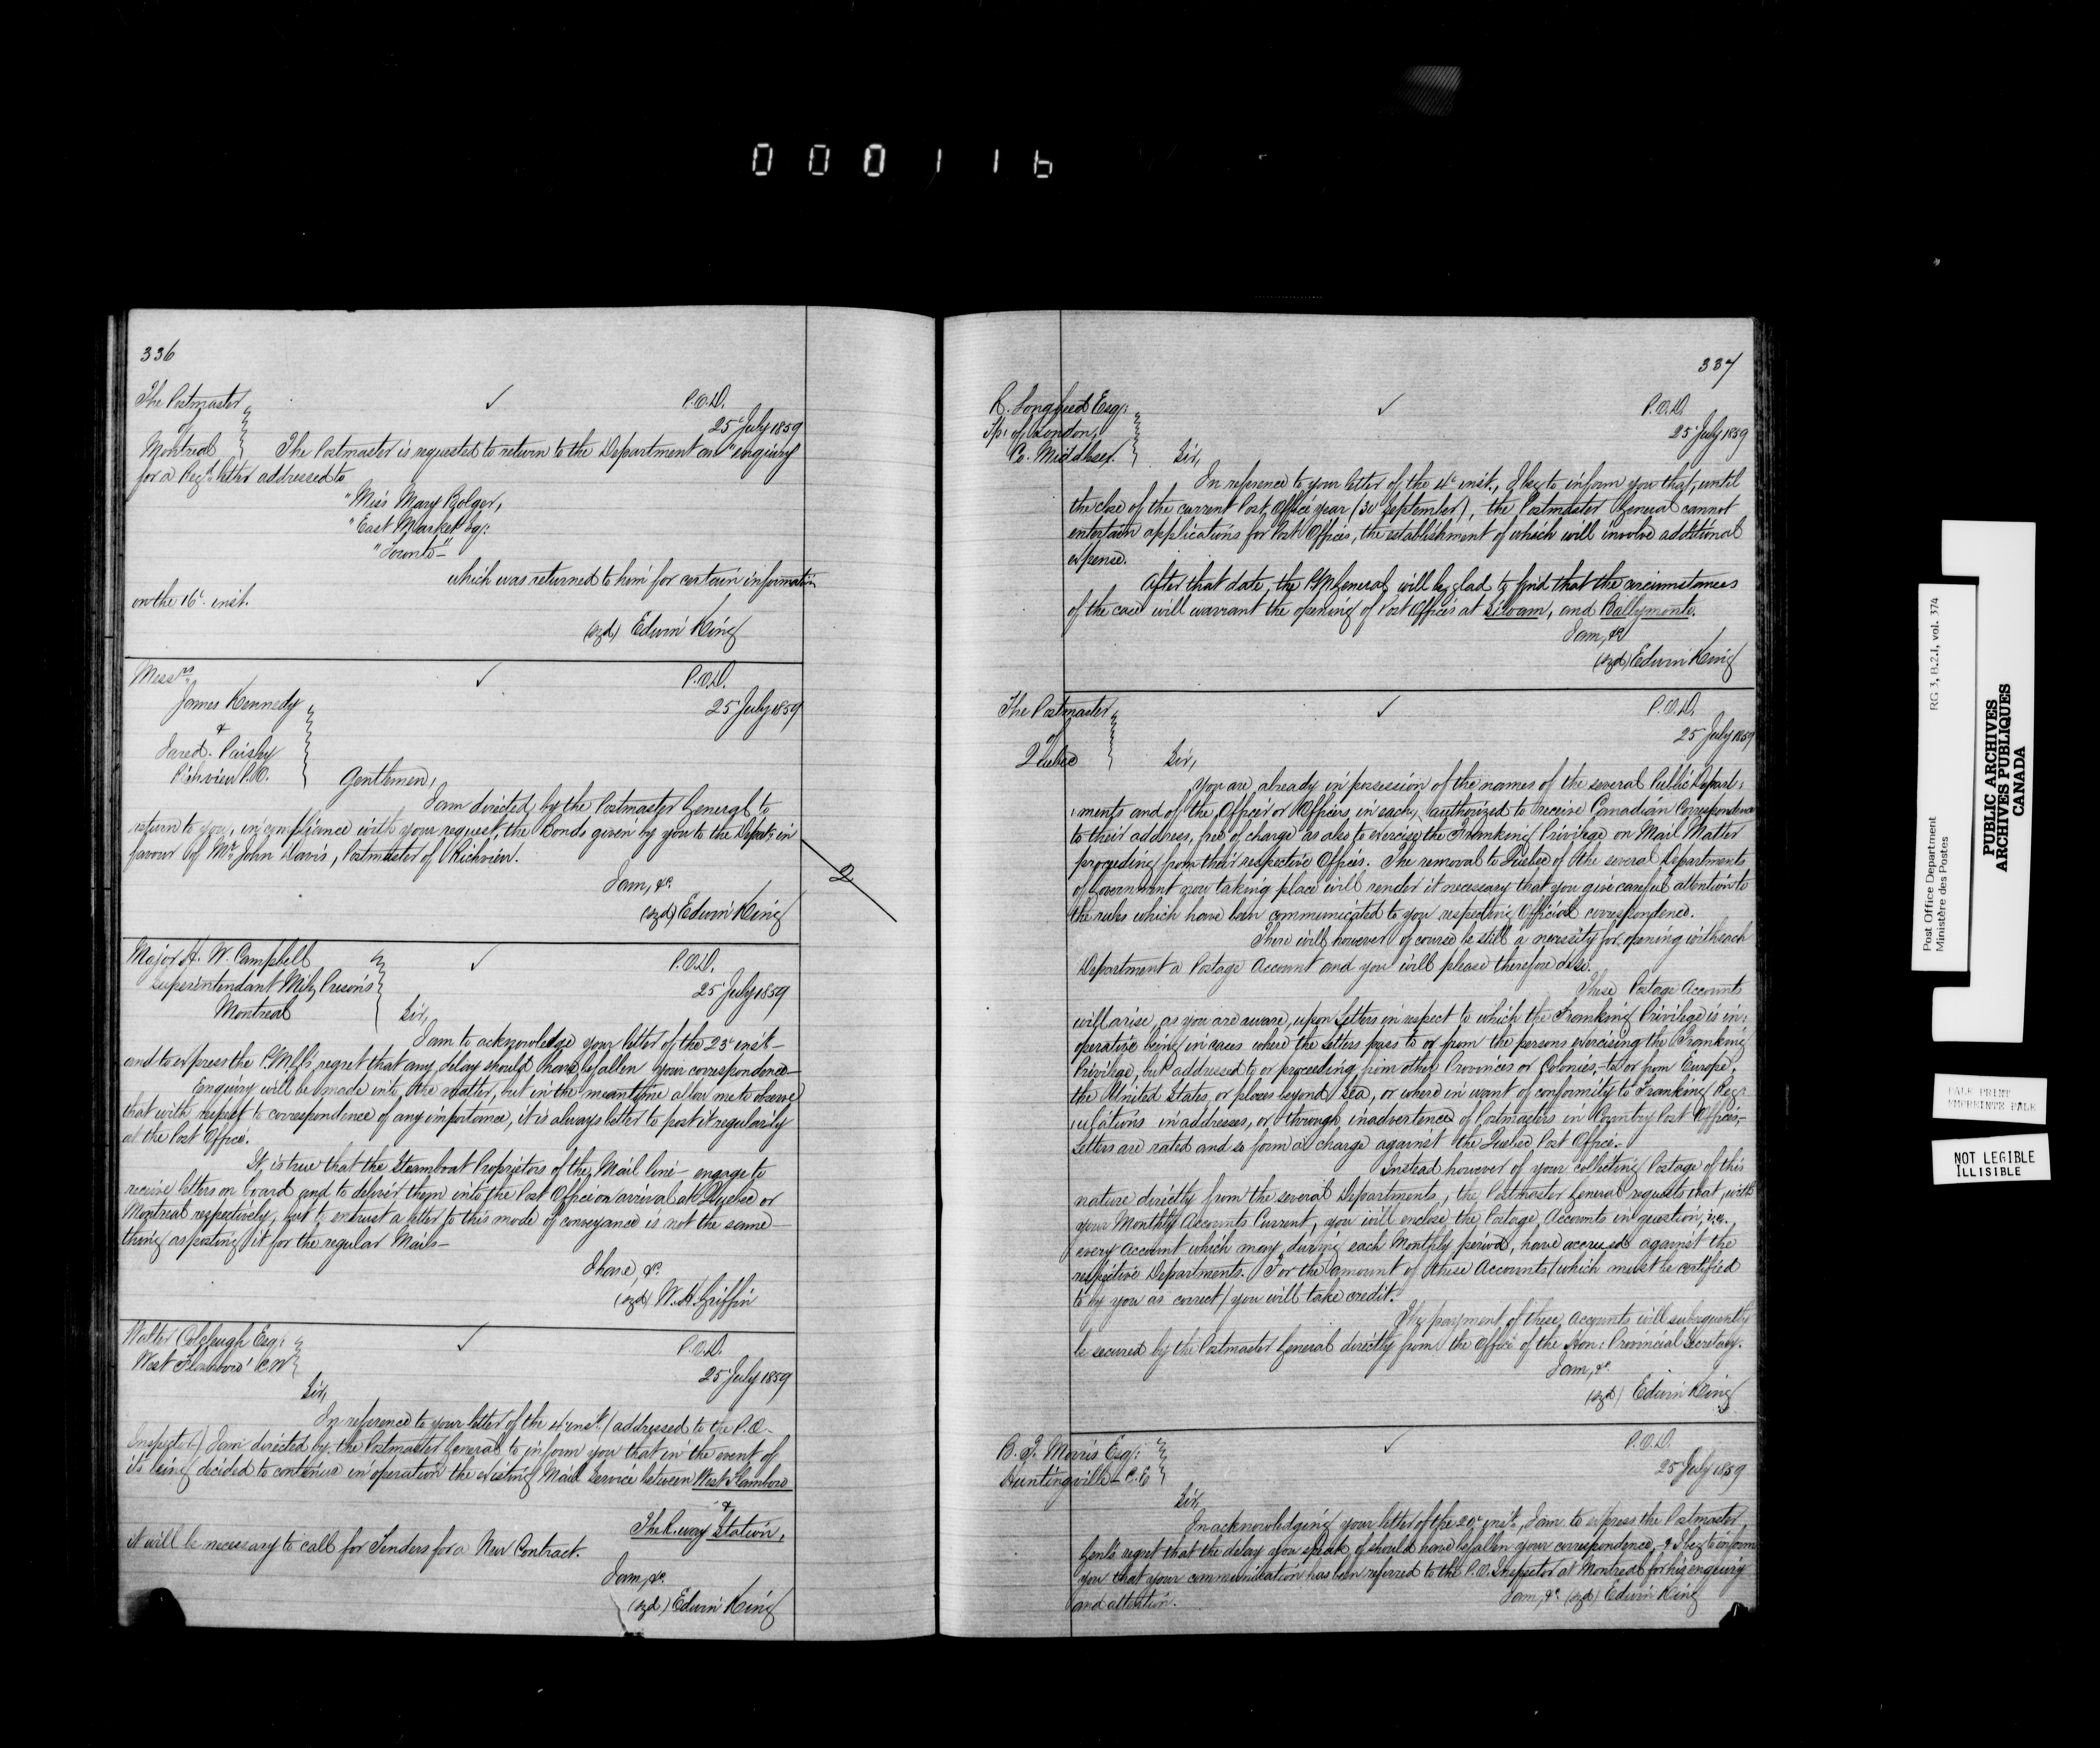 000116
336
The Postmaster
of
Montreal
✓
P.O.D.
25 July 1859
The Postmaster is requested to return to the Department an "enquiry
for a Regd. letter addressed to
"Miss Mary Bolger,
"East Market Sq:
"Toronto"
which was returned to him for certain information
on the 16th inst.
(sgd) Edwin King
Messrs.
James Kennedy
&
Jared Paisley
Richview P.O.
✓
P.O.D.
25 July 1859
Gentlemen,
I am directed by the Postmaster General to
return to you, in compliance with your request, the Bonds given by you to the Dept. in
favour of Mr. John Davis, Postmaster of Richview.
I am, &c.
(sgd) Edwin King
2
Major H. W. Campbell
Superintendant Mily Prisons
Montreal
✓
P.O.D.
25 July 1859
Sir,
I am to acknowledge your letter of the 23d inst—
and to express the P.M.G's regret that any delay should have befallen your correspondence—
Enquiry will be made into the matter, but in the meantime allow me to observe
that with respect to correspondence of any importance, it is always better to post it regularily
at the Post Office.
It is true that the Steamboat Proprietors of the Mail line— engage to
receive letters on board and to deliver them into the Post Office on arrival at Quebec or
Montreal respectively, but to entrust a letter to this mode of conveyance is not the same—
thing as posting it for the regular Mails—
I have, &c.
(sgd) W. H. Griffin
Walter Colcleugh Esq:
West Flamboro' C.W
✓
P.O.D.
25 July 1859
Sir,
In reference to your letter of the 4 inst. (addressed to the P.O.
Inspector) I am directed by the Postmaster General to inform you that in the event of
its being decided to continue in operation the existing Mail Service between West Flamboro
&
The R.way Station,
it will be necessary to call for Tenders for a New Contract.
I am, &c.
(sgd) Edwin King
337
R. Longford Esq:
Tp: of London,
Co. Middlesex.
✓
P.O.D.
25 July 1859
Sir,
In reference to your letter of the 4th inst., I beg to inform you that, until
the close of the current Post Office year (30 September), the Postmaster General cannot
entertain applications for Post Offices, the establishment of which will involve additional
expense.
After that date, the P.M. General will be glad to find that the circumstances
of the case will warrant the opening of Post Offices at Siloam, and Ballymonte.
I am, &c
(sgd) Edwin King
The Postmaster
of
Quebec
✓
P.O.D.
25 July 1859
Sir,
You are already in possession of the names of the several Public Depart:
:ments and of the Officer or Officers in each, authorized to receive Canadian Correspondence
to their address, free of charge as also to exercise the Franking Privilege on Mail Matter
proceeding from their respective Offices. The removal to Quebec of the several Departments
of Government now taking place will render it necessary that you give careful attention to
the rules which have been communicated to you respecting Official correspondence.
There will however of course be still a necessity for opening with each
Department a Postage Account and you will please therefore do so.
These Postage Accounts
will arise, as you are aware, upon Letters in respect to which the Franking Privilege is in:
operative being in cases where the Letters pass to or from the persons exercising the Franking
Privilege, but addressed to or proceeding from other Provinces or Colonies,—to or from Europe,
the United States, or places beyond Sea, or where in want of conformity to Franking Reg:
:ulations in addresses, or through inadvertence of Postmasters in Country Post Offices,—
Letters are rated and so form a charge against the Quebec Post Office.
Instead however of your collecting Postage of this
nature directly from the several Departments, the Postmaster General requests that, with
your Monthly Accounts Current, you will enclose the Postage Accounts in question, i.e.,
every Account which may, during each Monthly period, have accrued against the
respective Departments. For the amount of these Accounts (which must be certified
to by you as correct) you will take credit.
The payment of these Accounts will subsequently
be secured by the Postmaster General directly from the Office of the Hon: Provincial Secretary.
I am, &c.
(sgd) Edwin King
B. F. Morris Esq:
Huntingville— C.E
✓
P.O.D.
25 July 1859
Sir,
In acknowledging your letter of the 20th inst., I am to express the Postmaster
Genl's regret that the delay you speak of should have befallen your correspondence, & I beg to inform
you that your communication has been referred to the P.O. Inspector at Montreal for his enquiry
and attention.
I am, &c. (sgd) Edwin King
Post Office Department
Ministère des Postes
RG 3, B.2.I, vol. 374
PUBLIC ARCHIVES
ARCHIVES PUBLIQUES
CANADA
PALE PRINT
EMPREINTE PALE
NOT LEGIBLE
ILLISIBLE